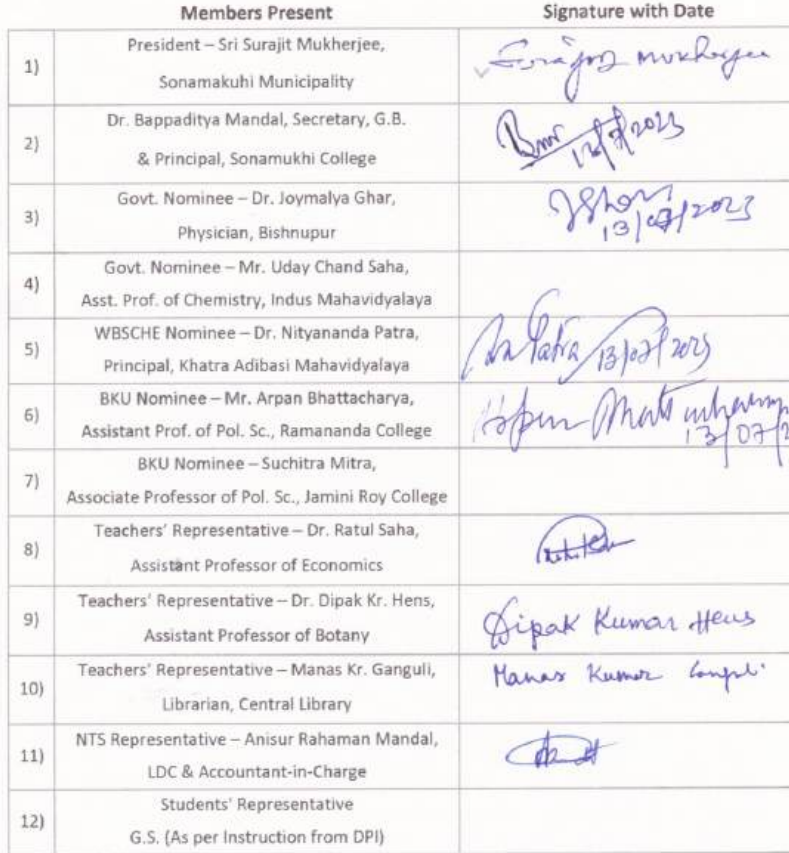 Members Present Signature with Date
1) President – Sri Surajit Mukherjee,
Sonamakuhi Municipality
Mukherjee
2) Dr. Bappaditya Mandal, Secretary, G.B.
& Principal, Sonamukhi College
13/7/2023
3) Govt. Nominee – Dr. Joymalya Ghar,
Physician, Bishnupur
JGhar
13/07/2023
4) Govt. Nominee – Mr. Uday Chand Saha,
Asst. Prof. of Chemistry, Indus Mahavidyalaya
5) WBSCHE Nominee – Dr. Nityananda Patra,
Principal, Khatra Adibasi Mahavidyalaya
Patra 13/07/2023
6) BKU Nominee – Mr. Arpan Bhattacharya,
Assistant Prof. of Pol. Sc., Ramananda College
Arpan
13/07/2
7) BKU Nominee – Suchitra Mitra,
Associate Professor of Pol. Sc., Jamini Roy College
8) Teachers' Representative – Dr. Ratul Saha,
Assistant Professor of Economics
9) Teachers' Representative – Dr. Dipak Kr. Hens,
Assistant Professor of Botany
Dipak Kumar Hens
10) Teachers' Representative – Manas Kr. Ganguli,
Librarian, Central Library
Manas Kumar Ganguli
11) NTS Representative – Anisur Rahaman Mandal,
LDC & Accountant-in-Charge
12) Students' Representative
G.S. (As per Instruction from DPI)